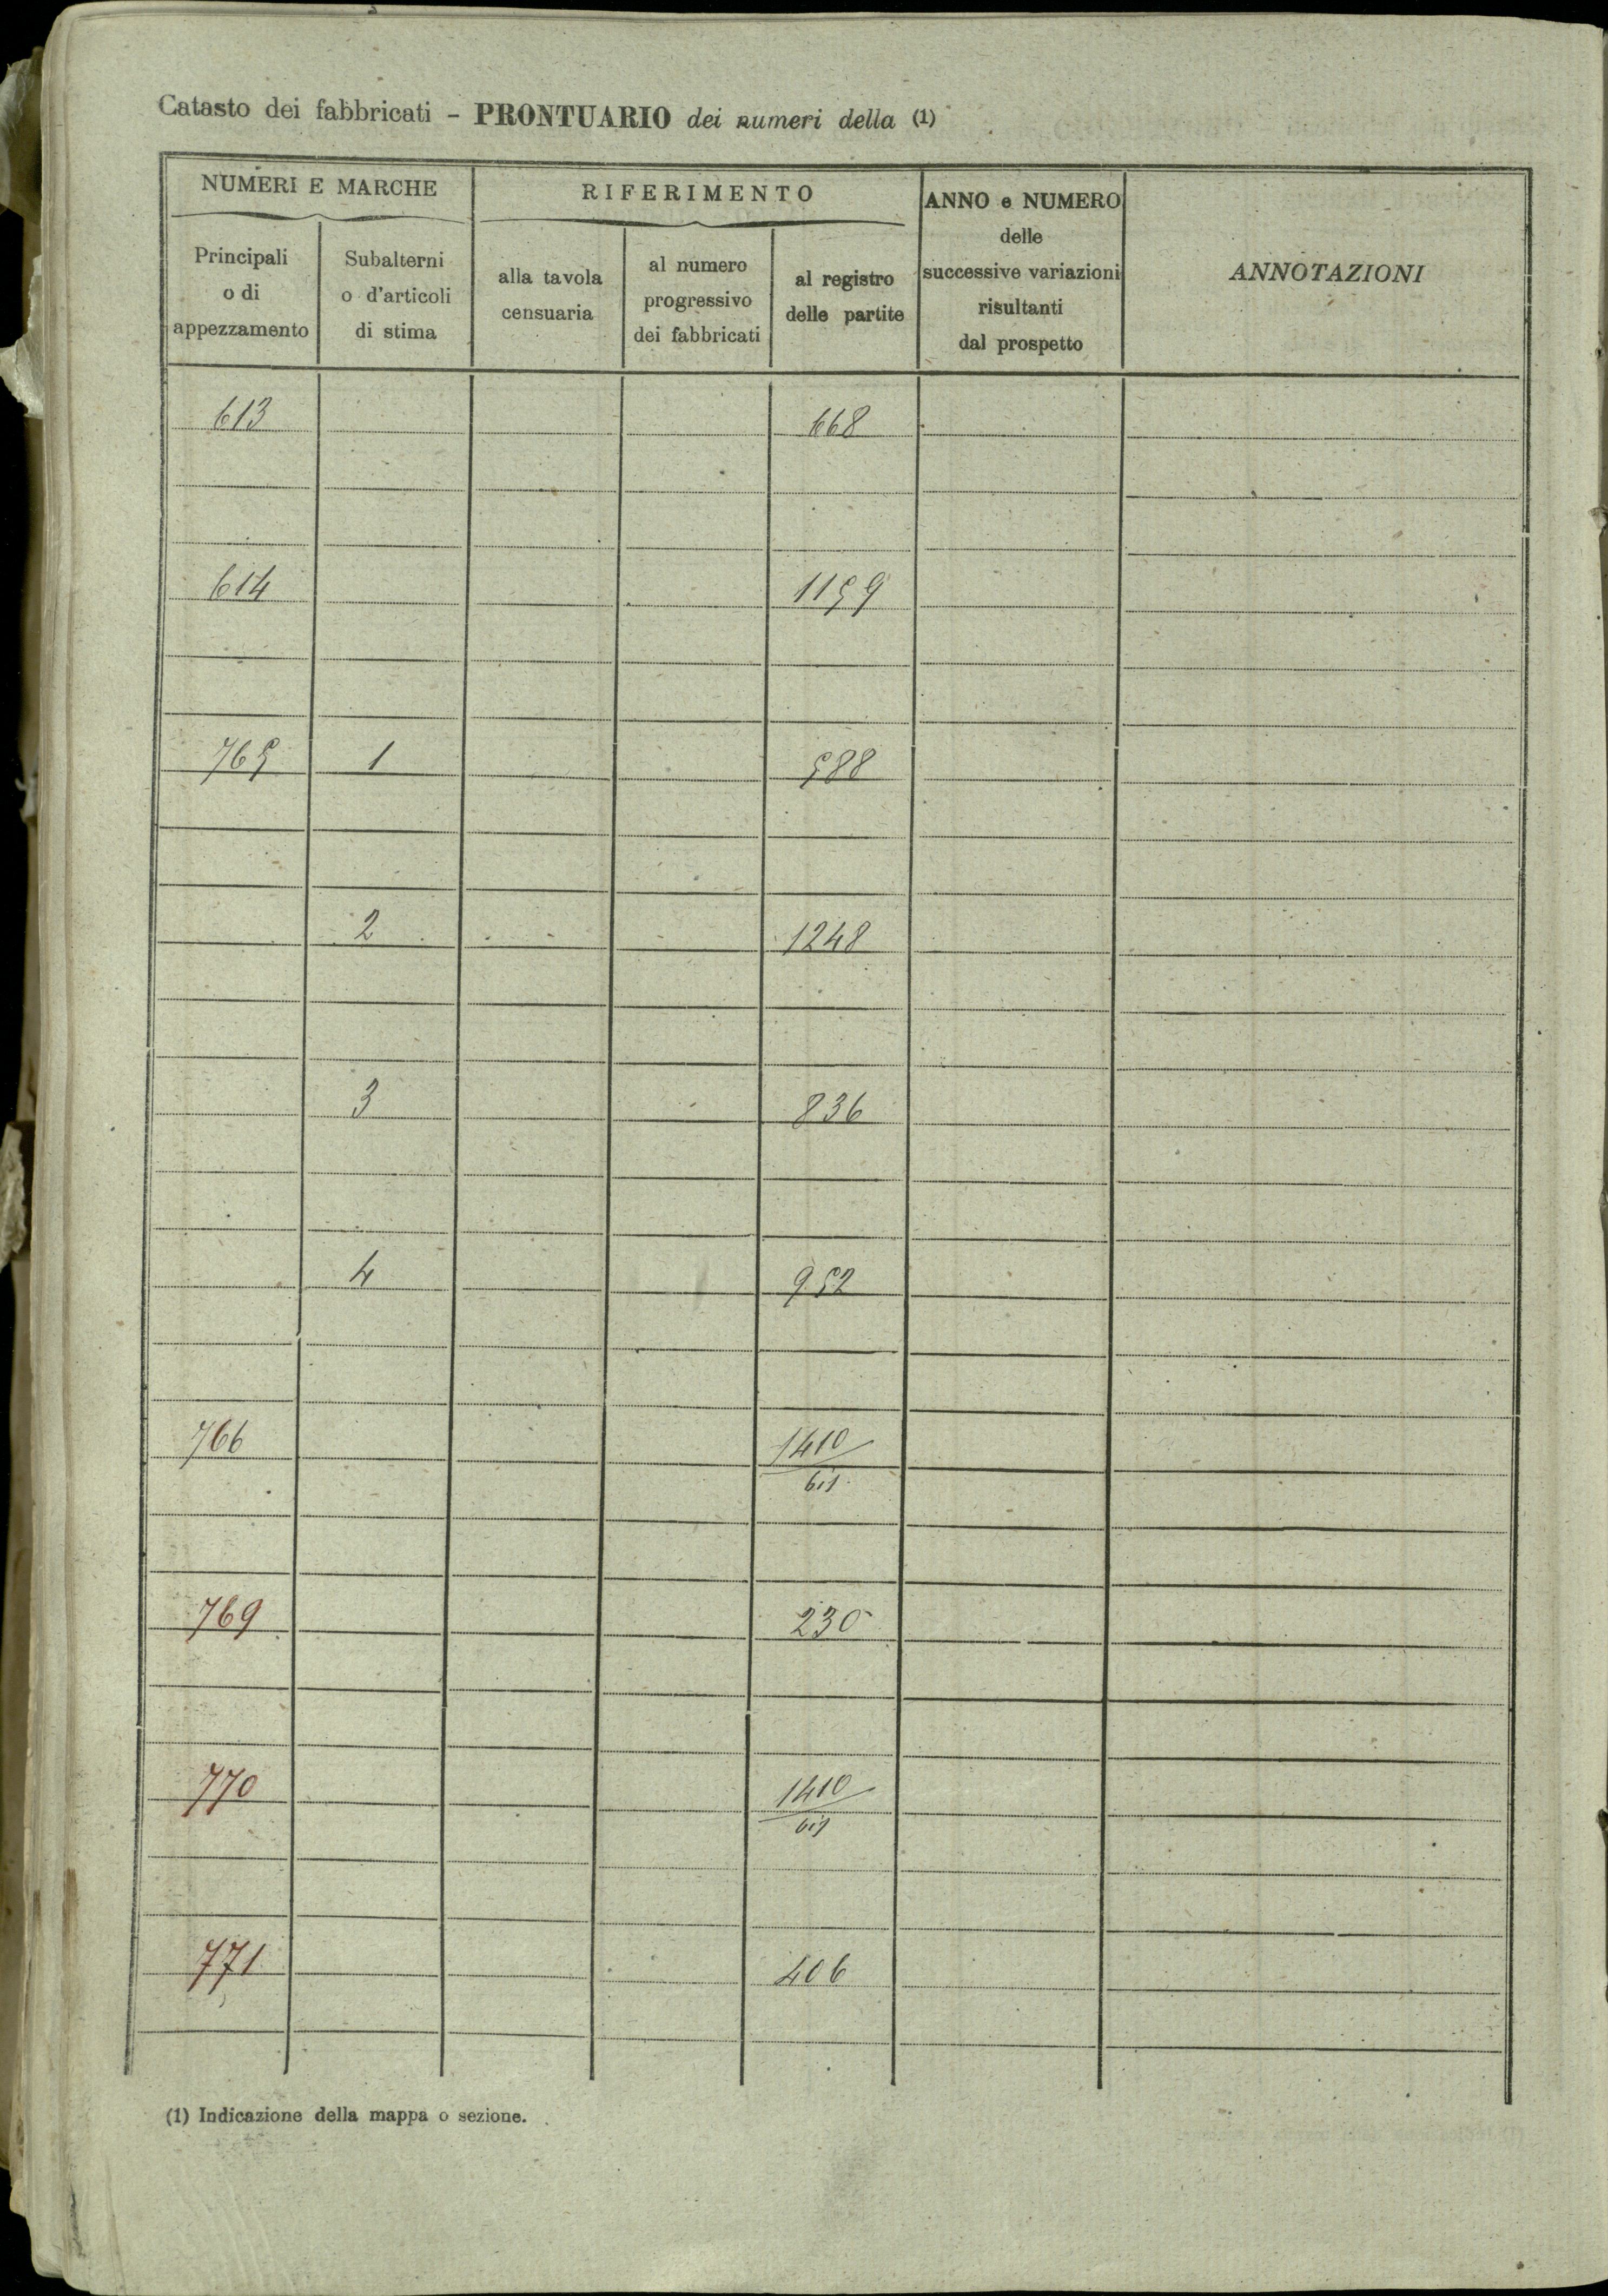 Catasto dei fabbricati - PRONTUARIO dei numeri della (1)
NUMERI E MARCHE
RIFERIMENTO
ANNO e NUMERO
delle
successive variazioni
risultanti
dal prospetto
ANNOTAZIONI
Principali
o di
appezzamento
Subalterni
o d'articoli
di stima
alla tavola
censuaria
al numero
progressivo
dei fabbricati
al registro
delle partite
613 668
614 1159
765 1 588
2 1248
3 836
4 952
766 1410
bis
769 230
770 1410
bis
771 406
(1) Indicazione della mappa o sezione.